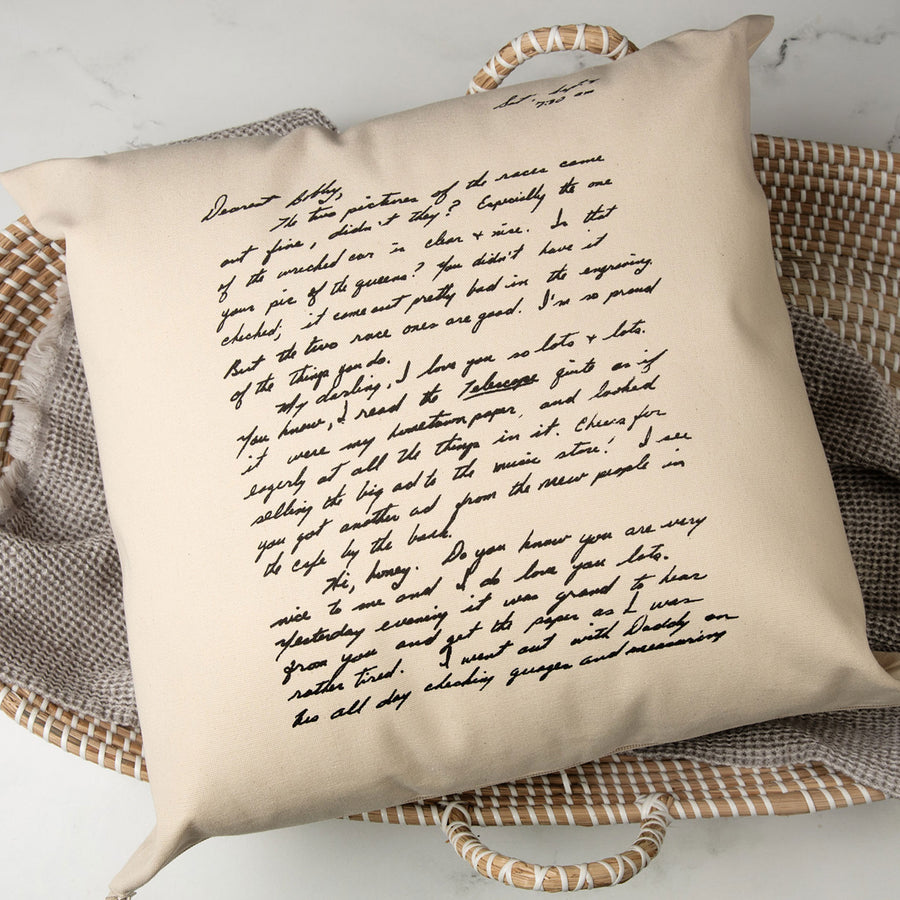 Sat. Sept 4
7:30 am
Dearest Bobby,
The two pictures of the races came
out fine, didn't they? Especially the one
of the wrecked car is clear & nice. Is that
your pic of the queens? You didn't have it
checked; it came out pretty bad in the engraving.
But the two race ones are good. I'm so proud
of the things you do.
My darling, I love you so lots & lots.
You know, I read the Telescope quite as if
it were my hometown paper, and looked
eagerly at all the things in it. Cheers for
selling the big ad to the music store! I see
you got another ad from the new people in
the cafe by the bank.
Hi, honey. Do you know you are very
nice to me and I do love you lots.
Yesterday evening it was grand to hear
from you and get the paper as I was
rather tired. I went out with Daddy on
his all day checking guages and measuring